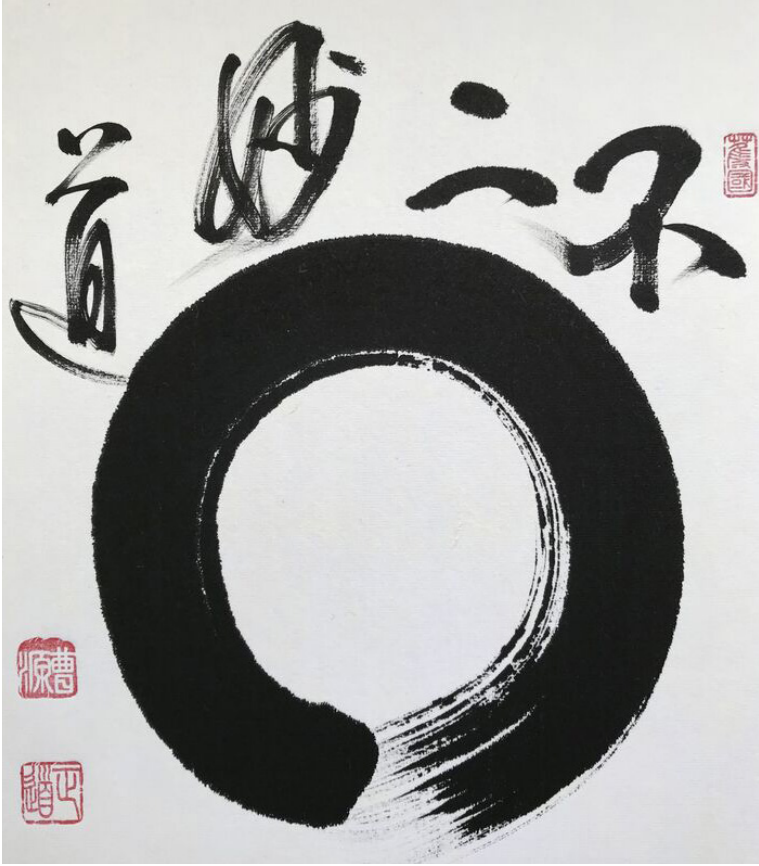 不二妙道
曹源
正道